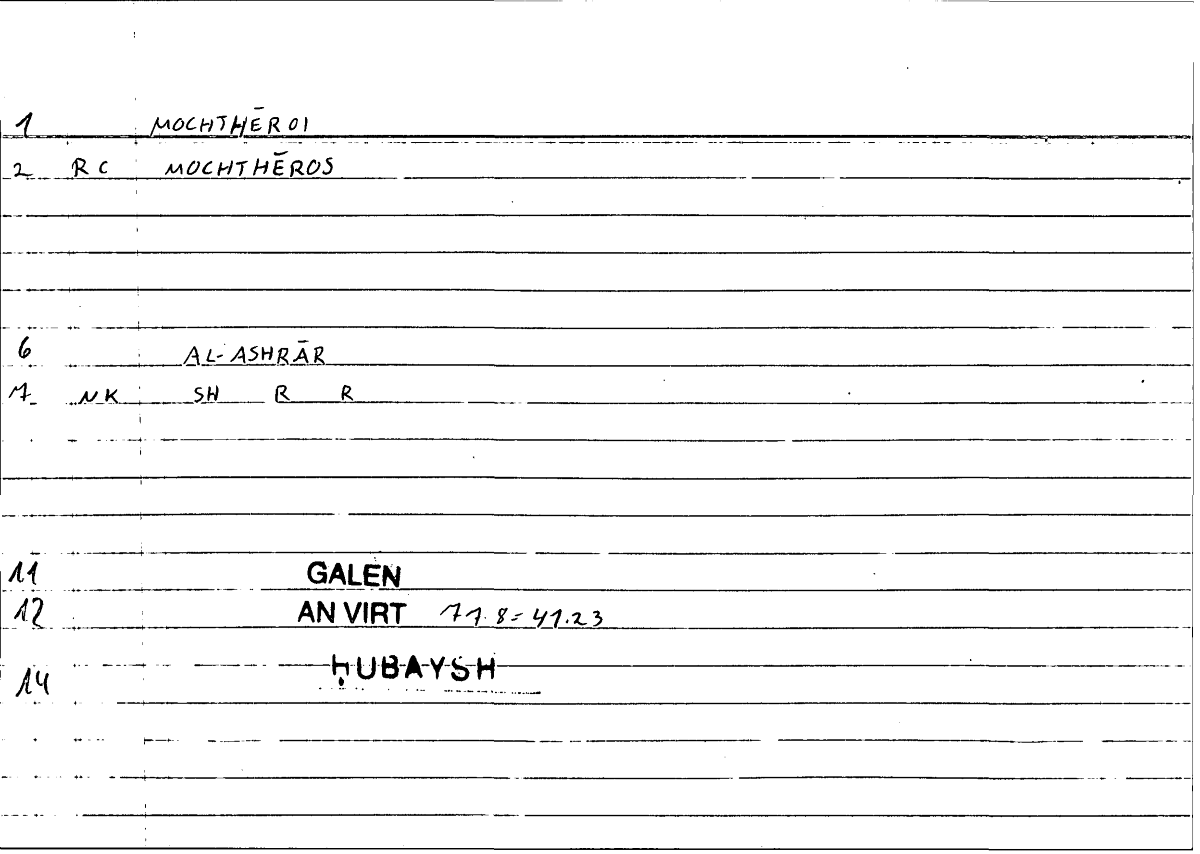 1 MOCHTHĒROI
2 RC MOCHTHĒROS
6 AL-ASHRĀR
7 NK SH R R
11 GALEN
12 AN VIRT 77.8=41.23
14 ḤUBAYSH